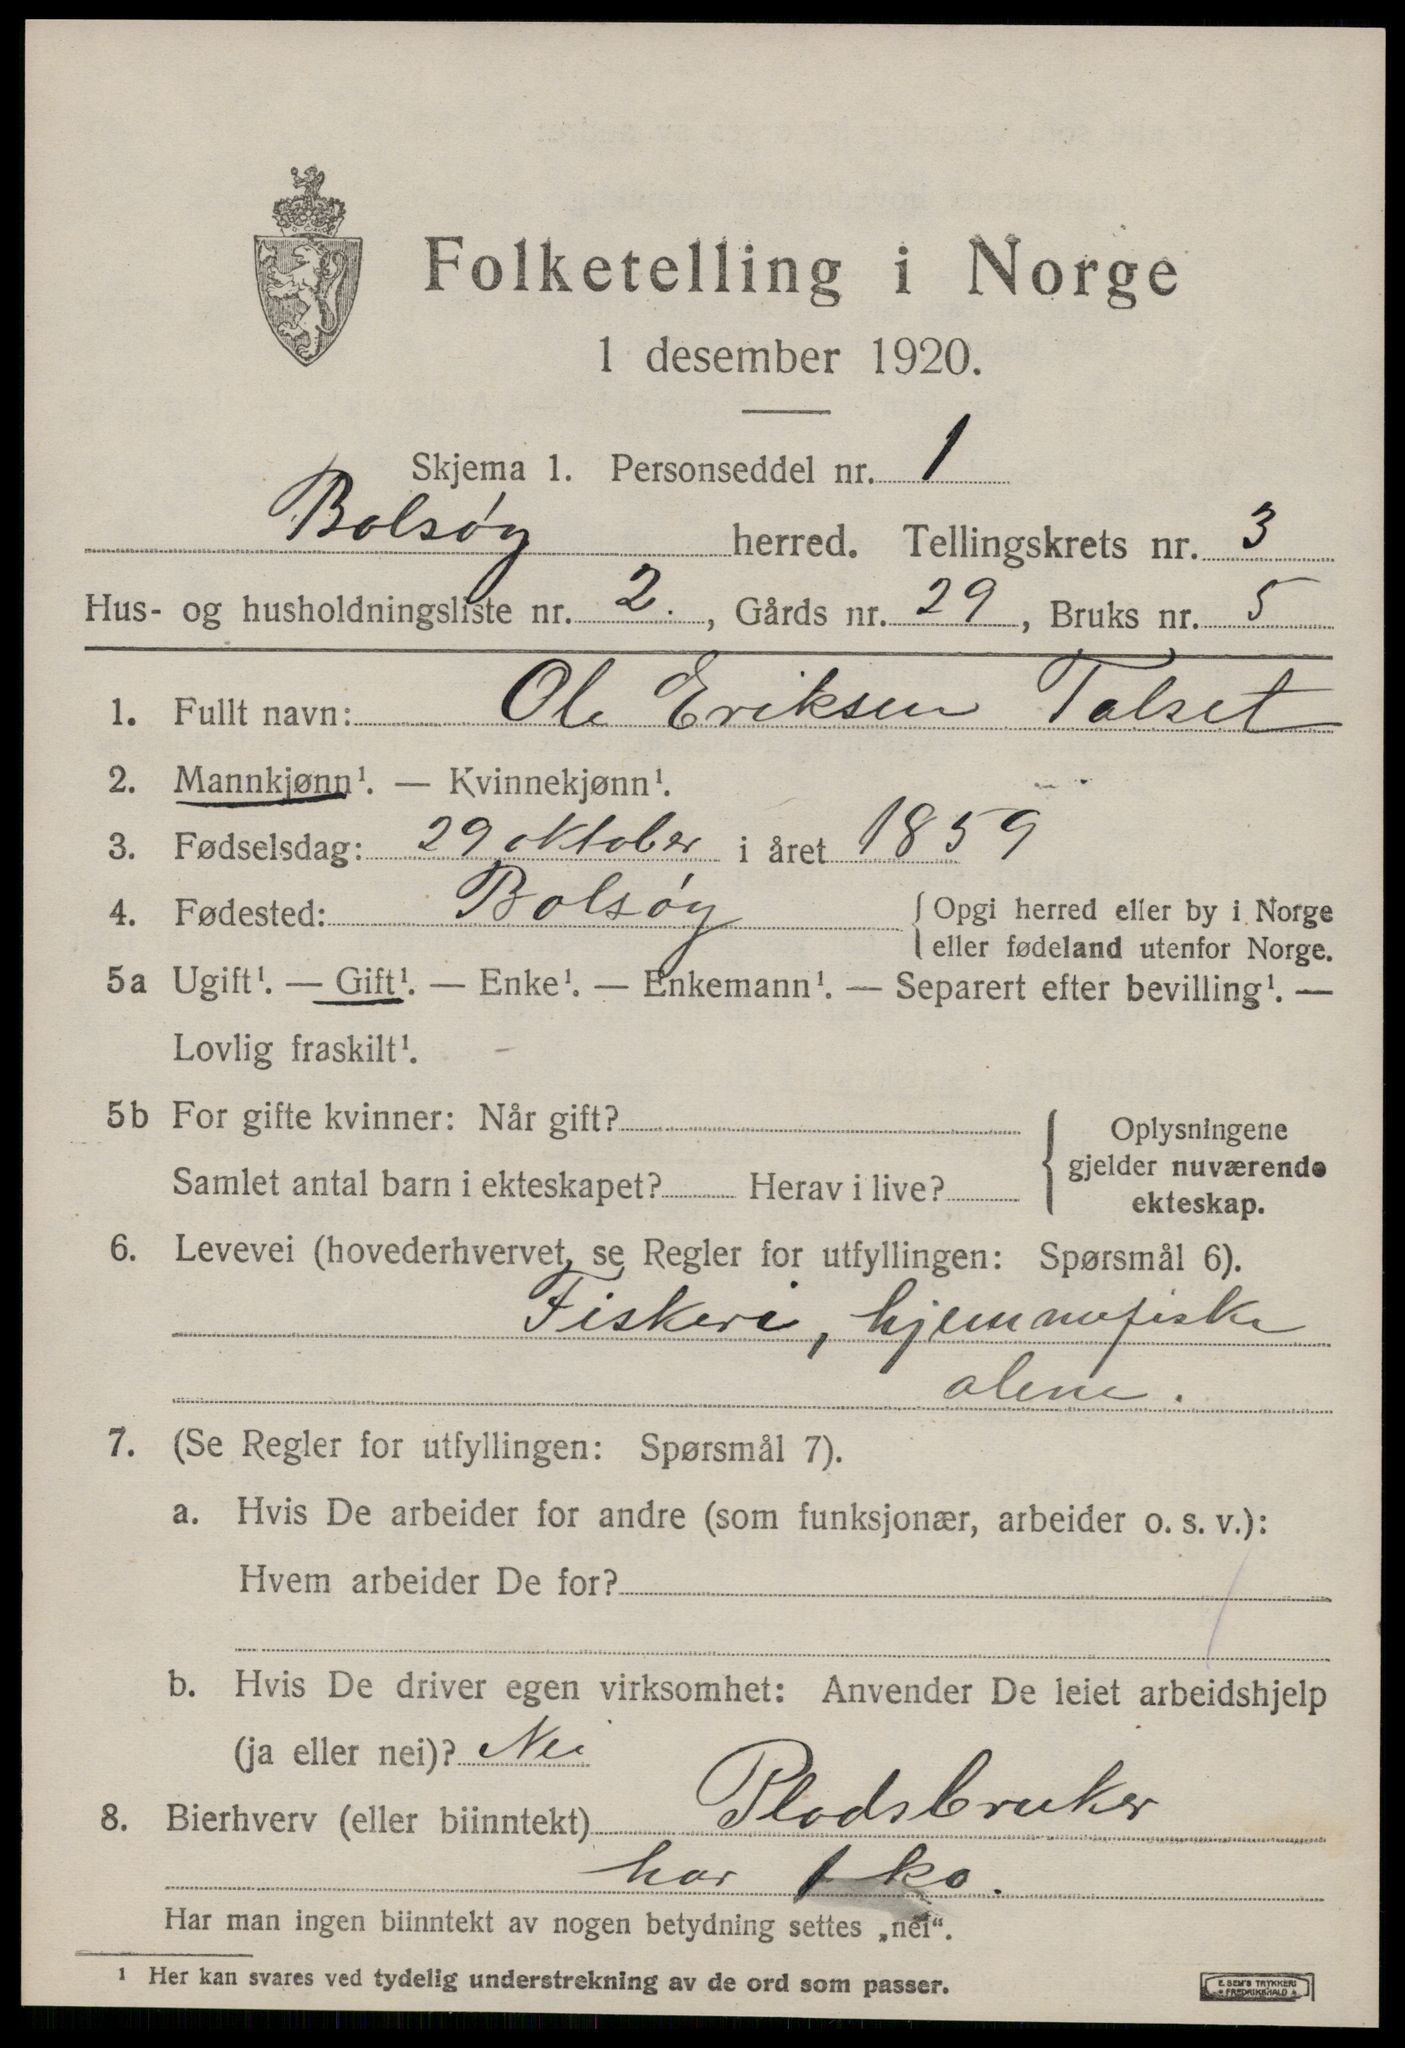 Folketelling i Norge
1 desember 1920.
Skjema 1. Personseddel nr. 1
Bolsøy herred. Tellingskrets nr. 3
Hus- og husholdningsliste nr. 2. , Gårds nr. 29 , Bruks nr. 5
1. Fullt navn: Ole Eriksen Talset
2. Mannkjønn¹. — Kvinnekjønn¹.
3. Fødselsdag: 29 oktober i året 1859
4. Fødested: Bolsøy { Opgi herred eller by i Norge
eller fødeland utenfor Norge.
5a Ugift¹. — Gift¹. — Enke¹. — Enkemann¹. — Separert efter bevilling¹. —
Lovlig fraskilt¹.
5b For gifte kvinner: Når gift?
Samlet antal barn i ekteskapet? Herav i live?
{ Oplysningene
gjelder nuværende
ekteskap.
6. Levevei (hovederhvervet, se Regler for utfyllingen: Spørsmål 6).
Fiskeri, hjemmefiske
alene.
7. (Se Regler for utfyllingen: Spørsmål 7).
a. Hvis De arbeider for andre (som funksjonær, arbeider o. s. v.):
Hvem arbeider De for?
b. Hvis De driver egen virksomhet: Anvender De leiet arbeidshjelp
(ja eller nei)? Nei
8. Bierhverv (eller biinntekt) Plodsbruker
har 1 ko.
Har man ingen biinntekt av nogen betydning settes „nei“.
¹ Her kan svares ved tydelig understrekning av de ord som passer.
E. SEM'S TRYKKERI
FREDRIKSHALD